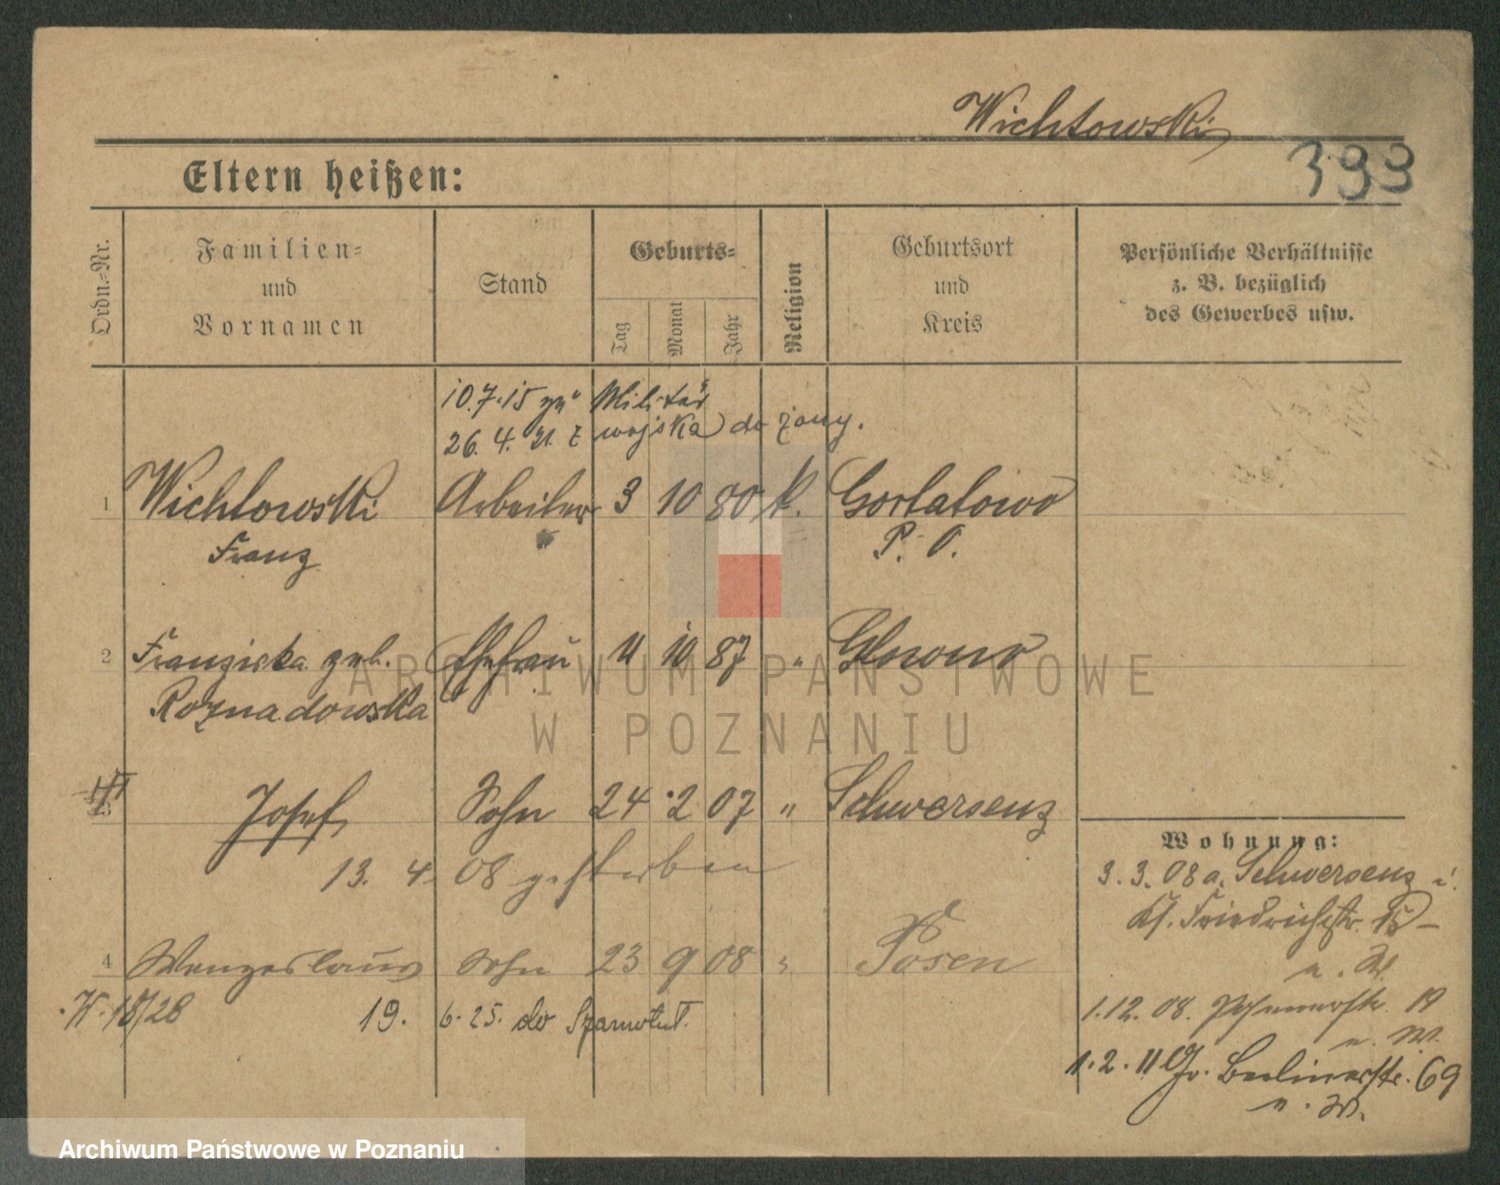 Wichtowski
399
Eltern heißen:
Ordn.-Nr.
Familien-
und
Vornamen
Stand
Geburts-
Tag
Monat
Jahr
Religion
Geburtsort
und
Kreis
Persönliche Verhältnisse
z. B. bezüglich
des Gewerbes usw.
10.7.15 zu Militär
26. 4. 21. z wojska do żony.
1 Wichtowski Arbeiter 3 10 80 k. Gortatowo
Franz P. O.
2 Franziska geb. Ehefrau 11 10 87 " Glowno
Roznadowska
3 Josef Sohn 24 2 07 " Schwersenz
13. 4. 08 gestorben
4 Wenzeslaus Sohn 23 9 08 " Posen
19. 6. 25. do Szamotuł.
Wohnung:
3. 3. 08 a. Schwersenz
Friedrichstr.
1. 12. 08.
1. 2. 11 Gr. Berlinerstr. 69
ARCHIWUM PAŃSTWOWE
W POZNANIU
Archiwum Państwowe w Poznaniu